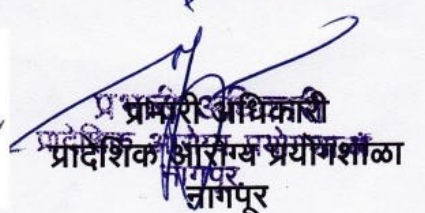 प्रभारी अधिकारी
प्रादेशिक आरोग्य प्रयोगशाळा
नागपूर